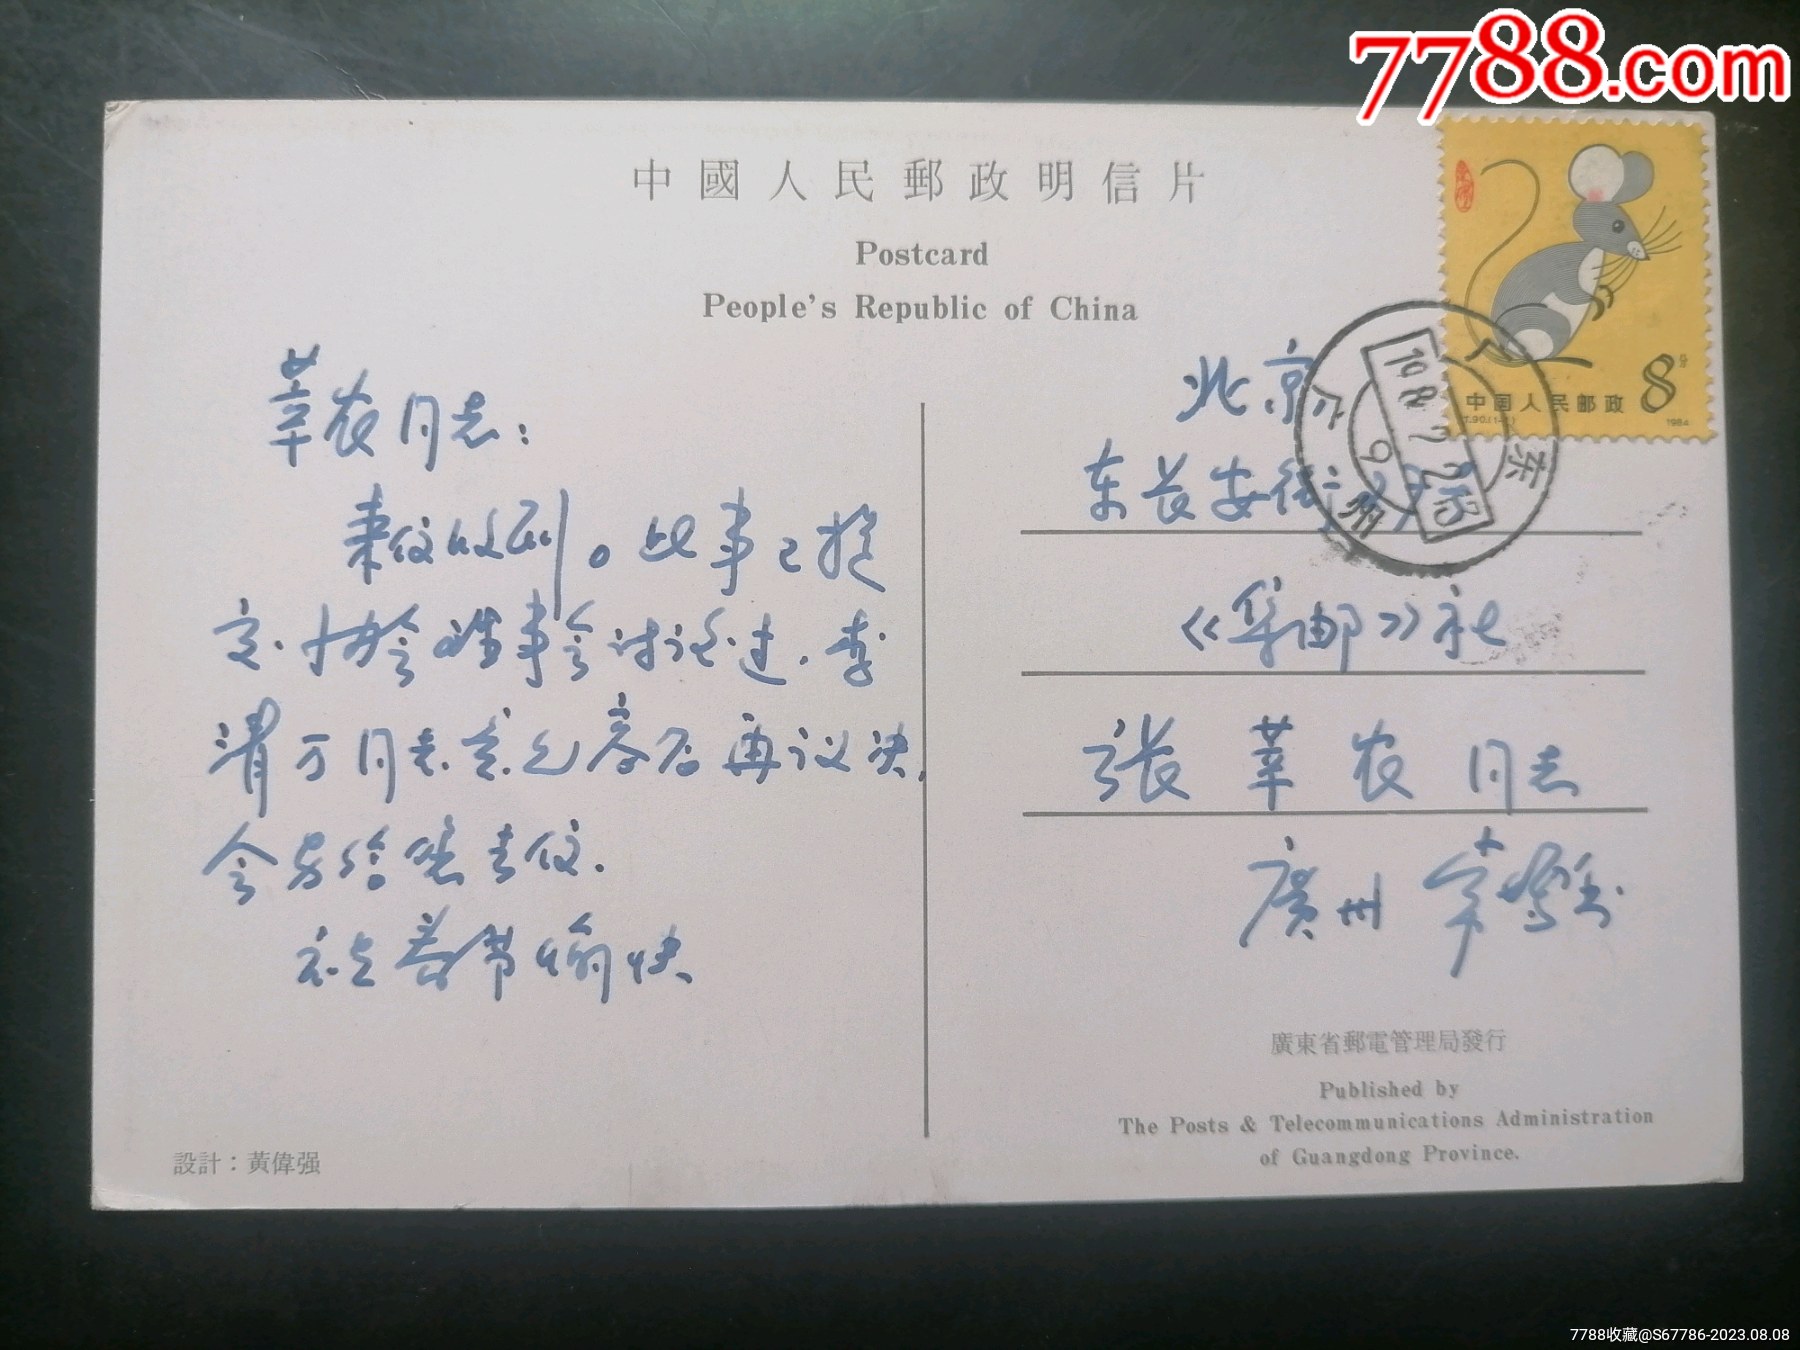 7788.com
中國人民郵政明信片
Postcard
People's Republic of China
8分
中国人民邮政
T.90.(1-1)
1984
莘农同志:
来信收到。此事已提
交.协会理事会讨论过.李
清可同志意见容后再议决,
会另给您去信.
祝春节愉快
北京
东长安街27
《集邮》社
张莘农同志
廣州 常
广东
广州
廣東省郵電管理局發行
Published by
The Posts & Telecommunications Administration
of Guangdong Province.
設計:黃偉强
7788收藏@S67786-2023.08.08